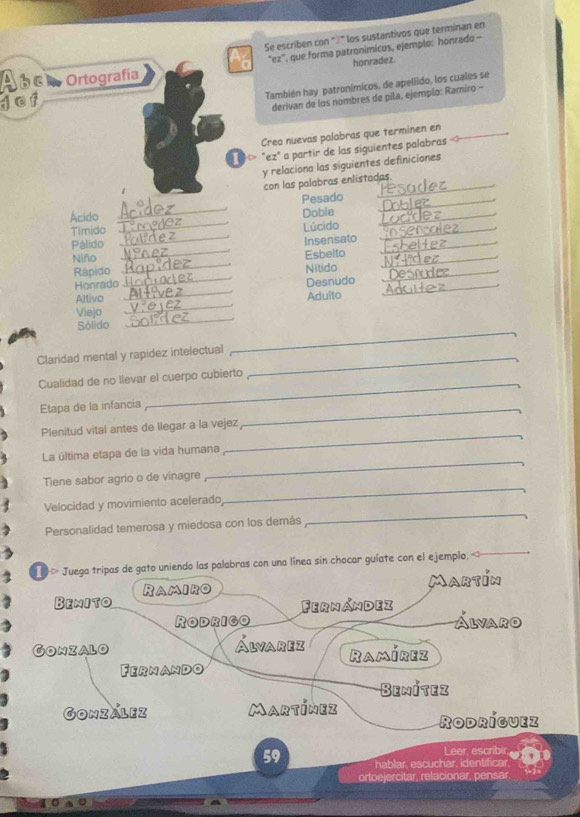 Abc Ortografía
def
Se escriben con "z" los sustantivos que terminan en
"ez", que forma patronímicos, ejemplo: honrado -
honradez.
También hay patronímicos, de apellido, los cuales se
derivan de los nombres de pila, ejemplo: Ramiro -
1 Crea nuevas palabras que terminen en
"ez" a partir de las siguientes palabras
y relaciona las siguientes definiciones
con las palabras enlistadas.
Ácido Acidez
Tímido Timedez
Pálido Palidez
Niño Niñez
Rápido Rapidez
Honrado
Altivo Altivez
Viejo Viejez
Sólido Solidez
Pesado Pesadez
Doble Doblez
Lúcido Lucidez
Insensato
Esbelto Esbeltez
Nítido Nitidez
Desnudo
Adulto Adultez
Claridad mental y rapidez intelectual
Cualidad de no llevar el cuerpo cubierto
Etapa de la infancia
Plenitud vital antes de llegar a la vejez
La última etapa de la vida humana
Tiene sabor agrio o de vinagre
Velocidad y movimiento acelerado
Personalidad temerosa y miedosa con los demás
1 Juega tripas de gato uniendo las palabras con una línea sin chocar guíate con el ejemplo.
Benito Ramiro Martín
Rodrigo Fernández Álvaro
Gonzalo Álvarez Ramírez
Fernando Benítez
González Martínez Rodríguez
59
Leer, escribir,
hablar, escuchar, identificar,
ortoejercitar, relacionar, pensar.